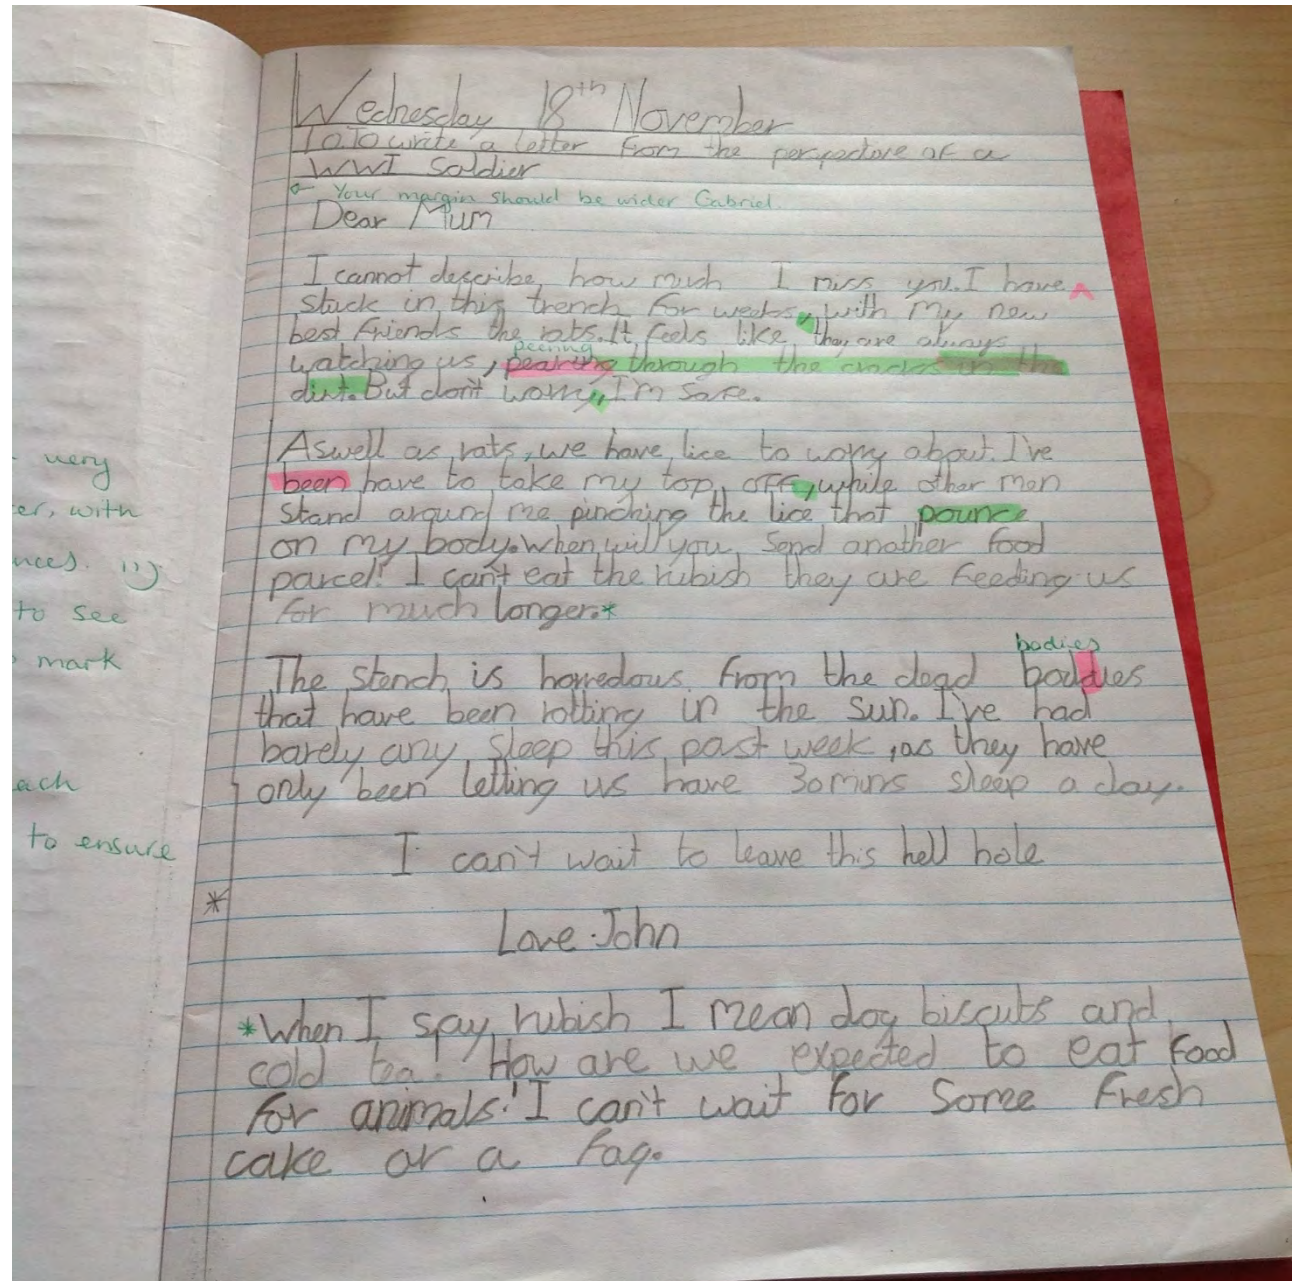 Wednesday 18th November
L.O. To write a letter from the perspective of a
WWI Soldier
Your margin should be wider Gabriel.
Dear Mum
I cannot describe how much I miss you. I have ^
stuck in this trench for weeks, with my new
best friends the rats. It feels like they are always
peering
watching us, pearing through the cracks in the
dirt. But don't worry, I'm safe.
Aswell as rats, we have lice to worry about. I've
been have to take my top off, while other men
stand around me pinching the lice that pounce
on my body. When will you send another food
parcel! I can't eat the rubish they are feeding us
for much longer.*
bodies
The stench is horredous from the dead boddies
that have been rotting in the sun. I've had
barely any sleep this past week, as they have
only been letting us have 30mins sleep a day.
I can't wait to leave this hell hole
*
Love John
*When I say rubish I mean dog biscuts and
cold tea! How are we expected to eat food
for animals! I can't wait for some fresh
cake or a fag.
very
er, with
nces. :)
to see
mark
each
to ensure